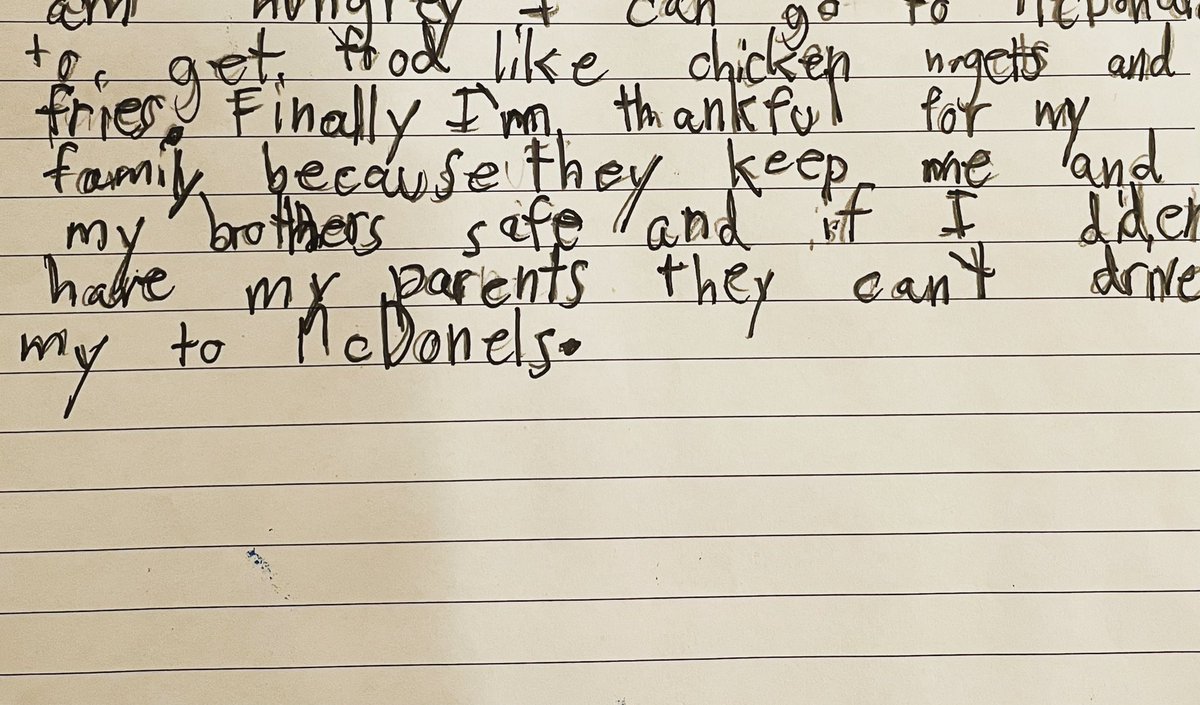 am hungrey I can go to McDonal
to get food like chicken nrgetts and
fries. Finally I'm thankful for my
family because they keep me and
my brothers safe and if I diden
have my parents they can't drive
my to McDonels.